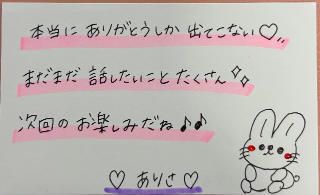 本当に ありがとうしか 出てこない♡,,
まだまだ 話したいこと たくさん✧✧
次回の お楽しみだね♪♪
♡ ありさ ♡